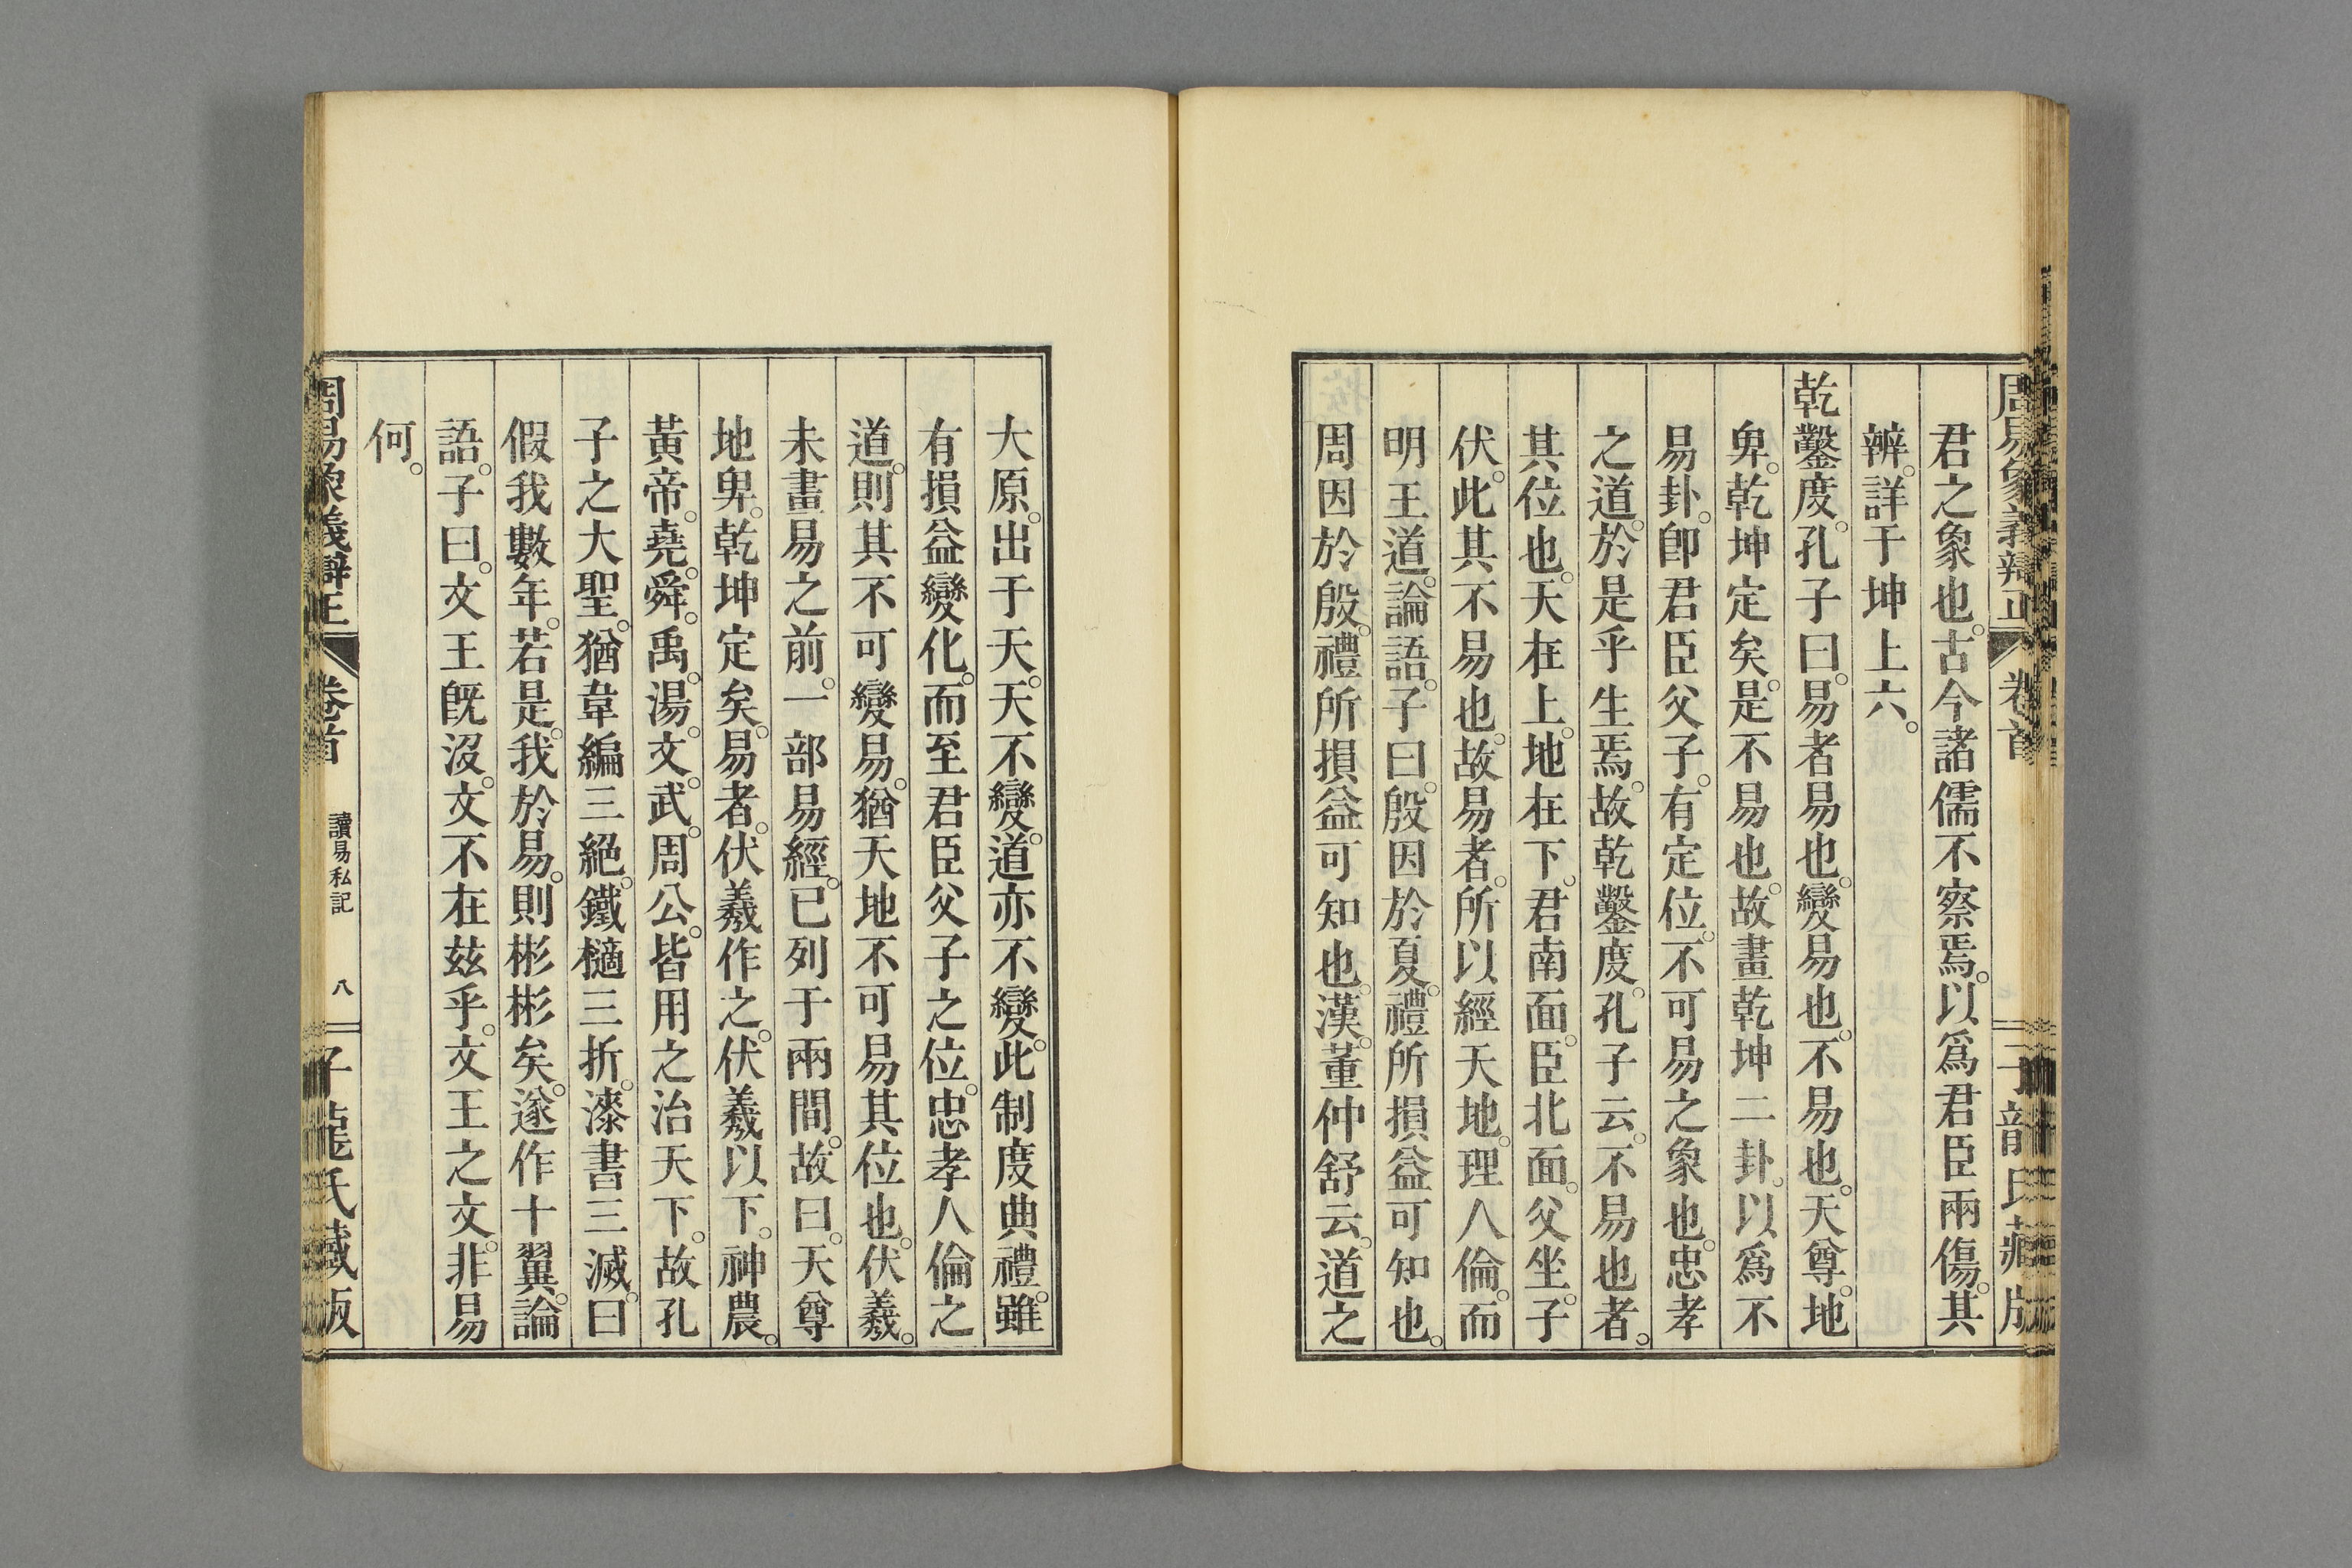 周易象義辯正 卷首 子龍氏藏版
君之象也。古今諸儒不察焉。以爲君臣兩傷。其
辨。詳于坤上六。
乾鑿度。孔子曰。易者易也。變易也。不易也。天尊。地
卑。乾坤定矣。是不易也。故畫乾坤二卦。以爲不
易卦。卽君臣父子。有定位。不可易之象也。忠孝
之道。於是乎生焉。故乾鑿度。孔子云。不易也者。
其位也。天在上。地在下。君南面。臣北面。父坐。子
伏。此其不易也。故易者。所以經天地。理人倫。而
明王道。論語。子曰。殷因於夏。禮所損益可知也。
周因於殷。禮所損益可知也。漢。董仲舒云。道之
大原。出于天。天不變。道亦不變。此制度典禮。雖
有損益變化。而至君臣父子之位。忠孝人倫之
道。則其不可變易。猶天地不可易其位也。伏羲。
未畫易之前。一部易經。已列于兩間。故曰。天尊
地卑。乾坤定矣。易者。伏羲作之。伏羲以下。神農。
黃帝。堯。舜。禹。湯。文。武。周公。皆用之治天下。故孔
子之大聖。猶韋編三絕。鐵擿三折。漆書三滅。曰
假我數年。若是。我於易。則彬彬矣。遂作十翼。論
語。子曰。文王旣沒。文不在玆乎。文王之文。非易
何。
周易象義辯正 卷首 讀易私記 八 子龍氏藏版